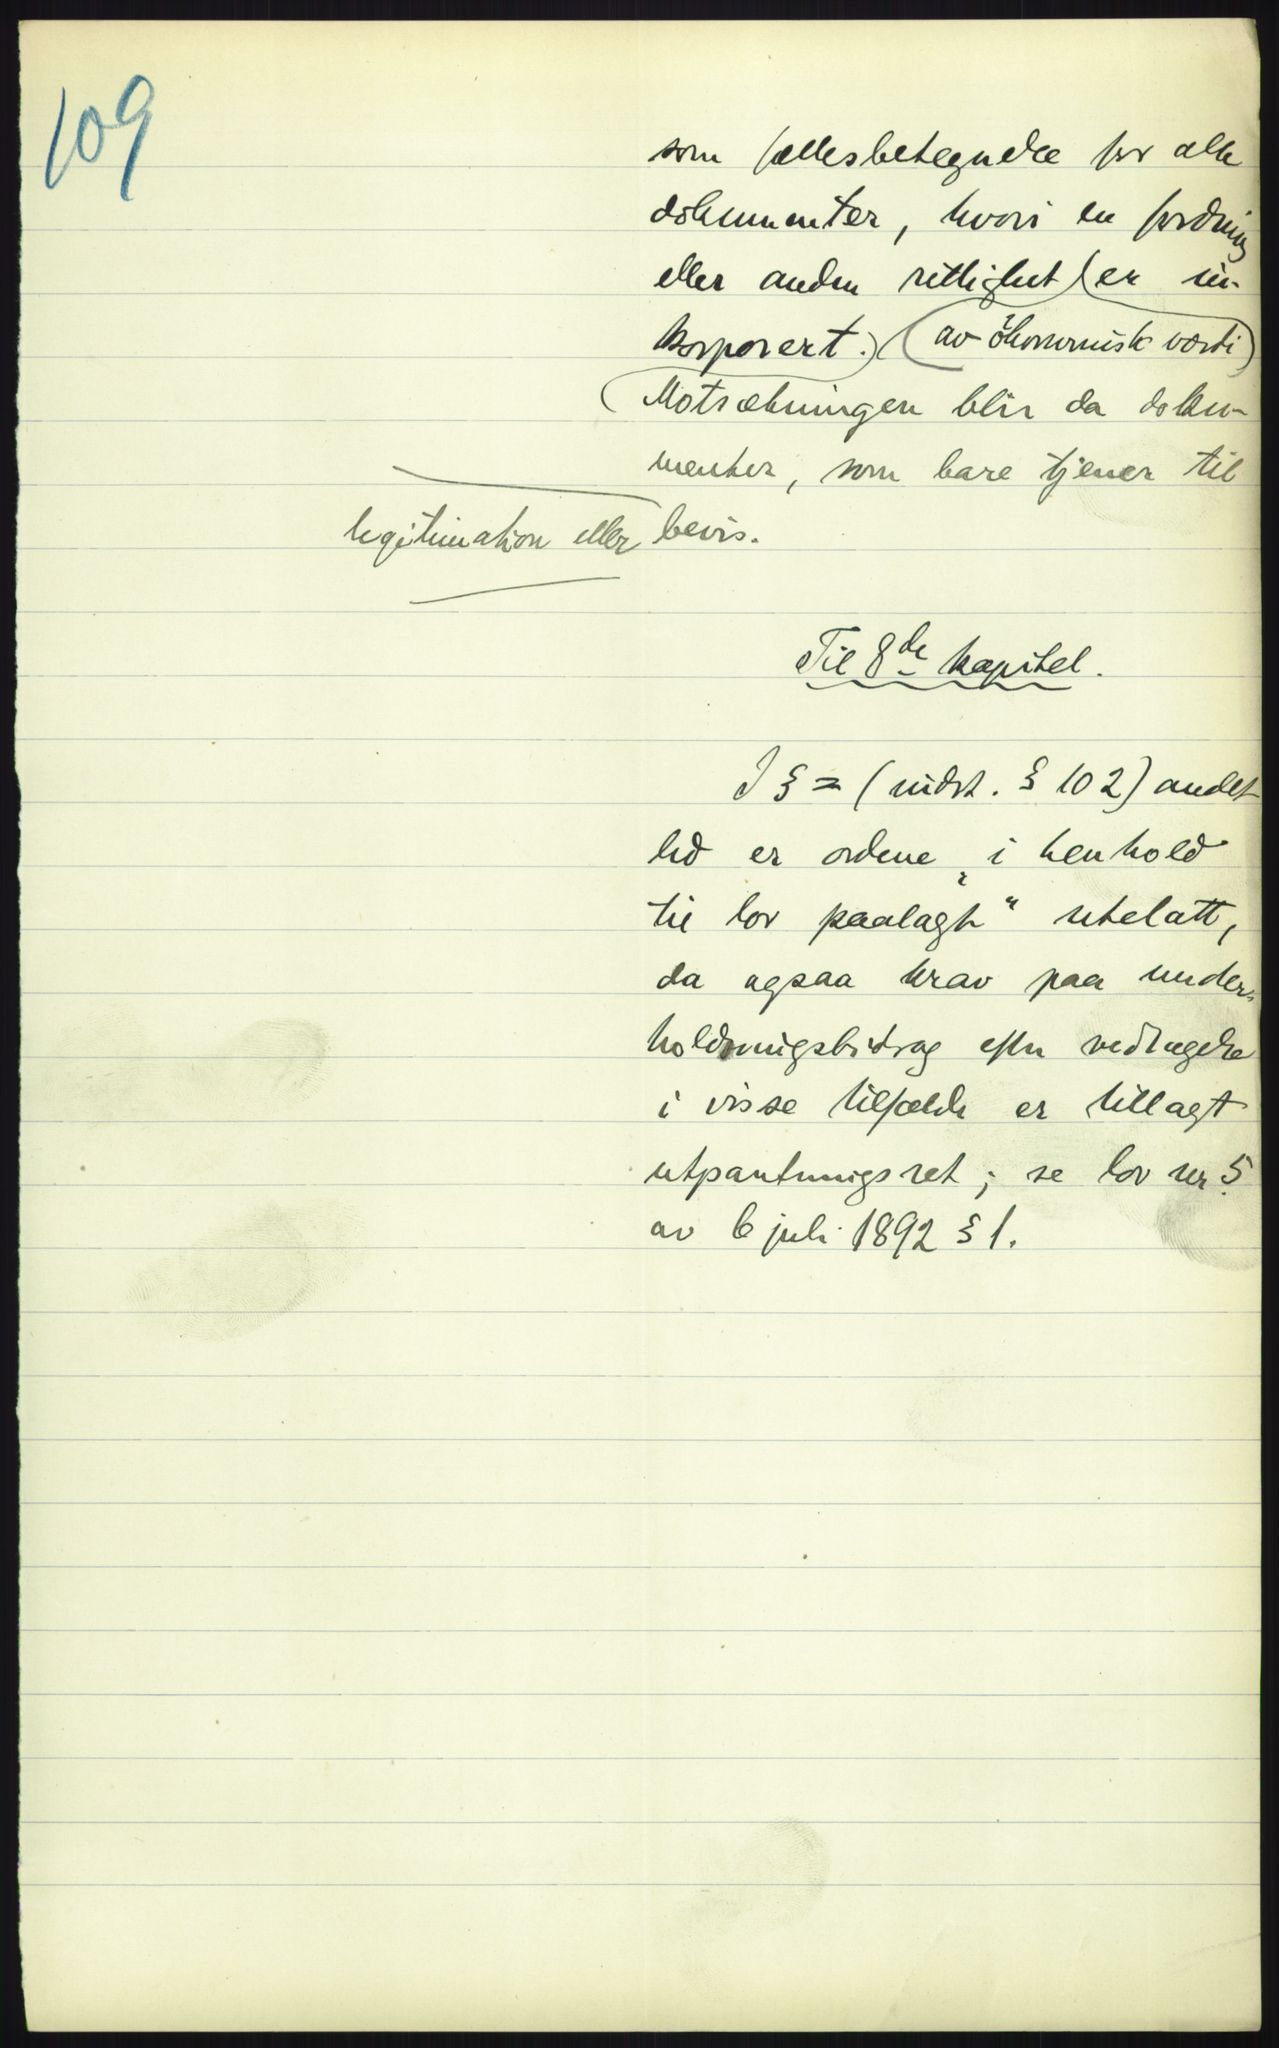 109
som fællesbetegnelse for alle
dokumenter, hvori en fordring
eller anden rettighet (er in-
korporert.) (av ökonomisk værdi)
(Motsætningen blir da doku-
menter, som bare tjener til
legitimation eller bevis.
Til 8de kapitel.
I § = (indst. § 102) andet
led er ordene „i henhold
til lov paalagt“ utelatt,
da ogsaa krav paa under-
holdningsbidrag efter vedtagelse
i visse tilfælde er tillagt
utpantningsret; se lov nr. 5
av 6 juli 1892 § 1.